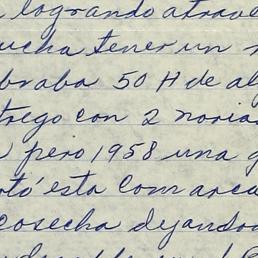 logrando atrave
ucha tener un
braba 50 H de al
trego con 2 noria
pero 1958 una g
otó esta Comarca
cosecha dejando